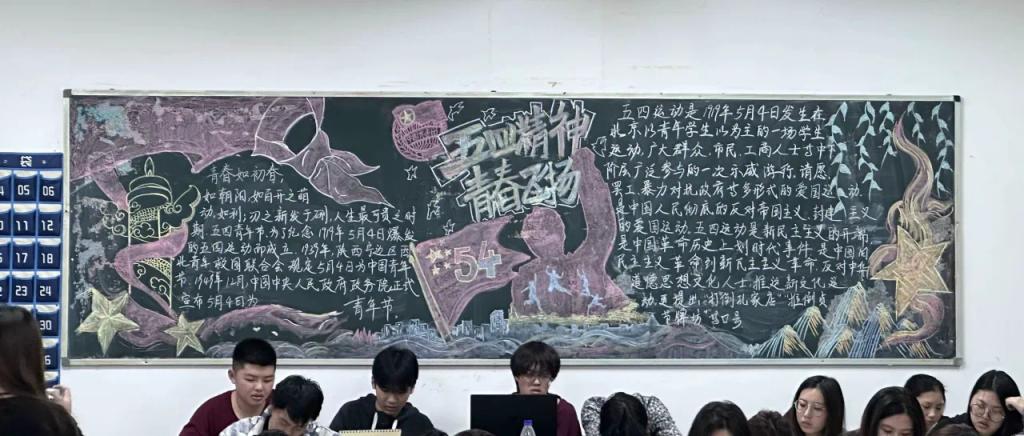 五四精神
青春飞扬
54
青春如初春
如朝阳,如百卉之萌
动,如利刃之新发于硎,人生最可贵之时
期.五四青年节为了纪念1919年5月4日爆发
的五四运动而成立,1939年,陕西宁边区西
北青年救国联合会规定5月4日为中国青年
节.1949年12月,中国中央人民政府政务院正式
宣布5月4日为
青年节
五四运动是1919年5月4日发生在
北京以青年学生以为主的一场学生
运动,广大群众、市民、工商人士等中下
阶层广泛参与的一次示威游行,请愿
罢工,暴力对抗政府等多形式的爱国运动
是中国人民彻底的反对帝国主义、封建主义
的爱国运动,五四运动是新民主主义的开端
是中国革命历史上划时代事件,是中国旧
民主主义革命到新民主主义革命,反对中华
道德思想文化人士推运新文化运
动,更提出"打倒孔家店""推倒贞
节牌坊"等口号
05 06
11 12
17 18
23 24
30